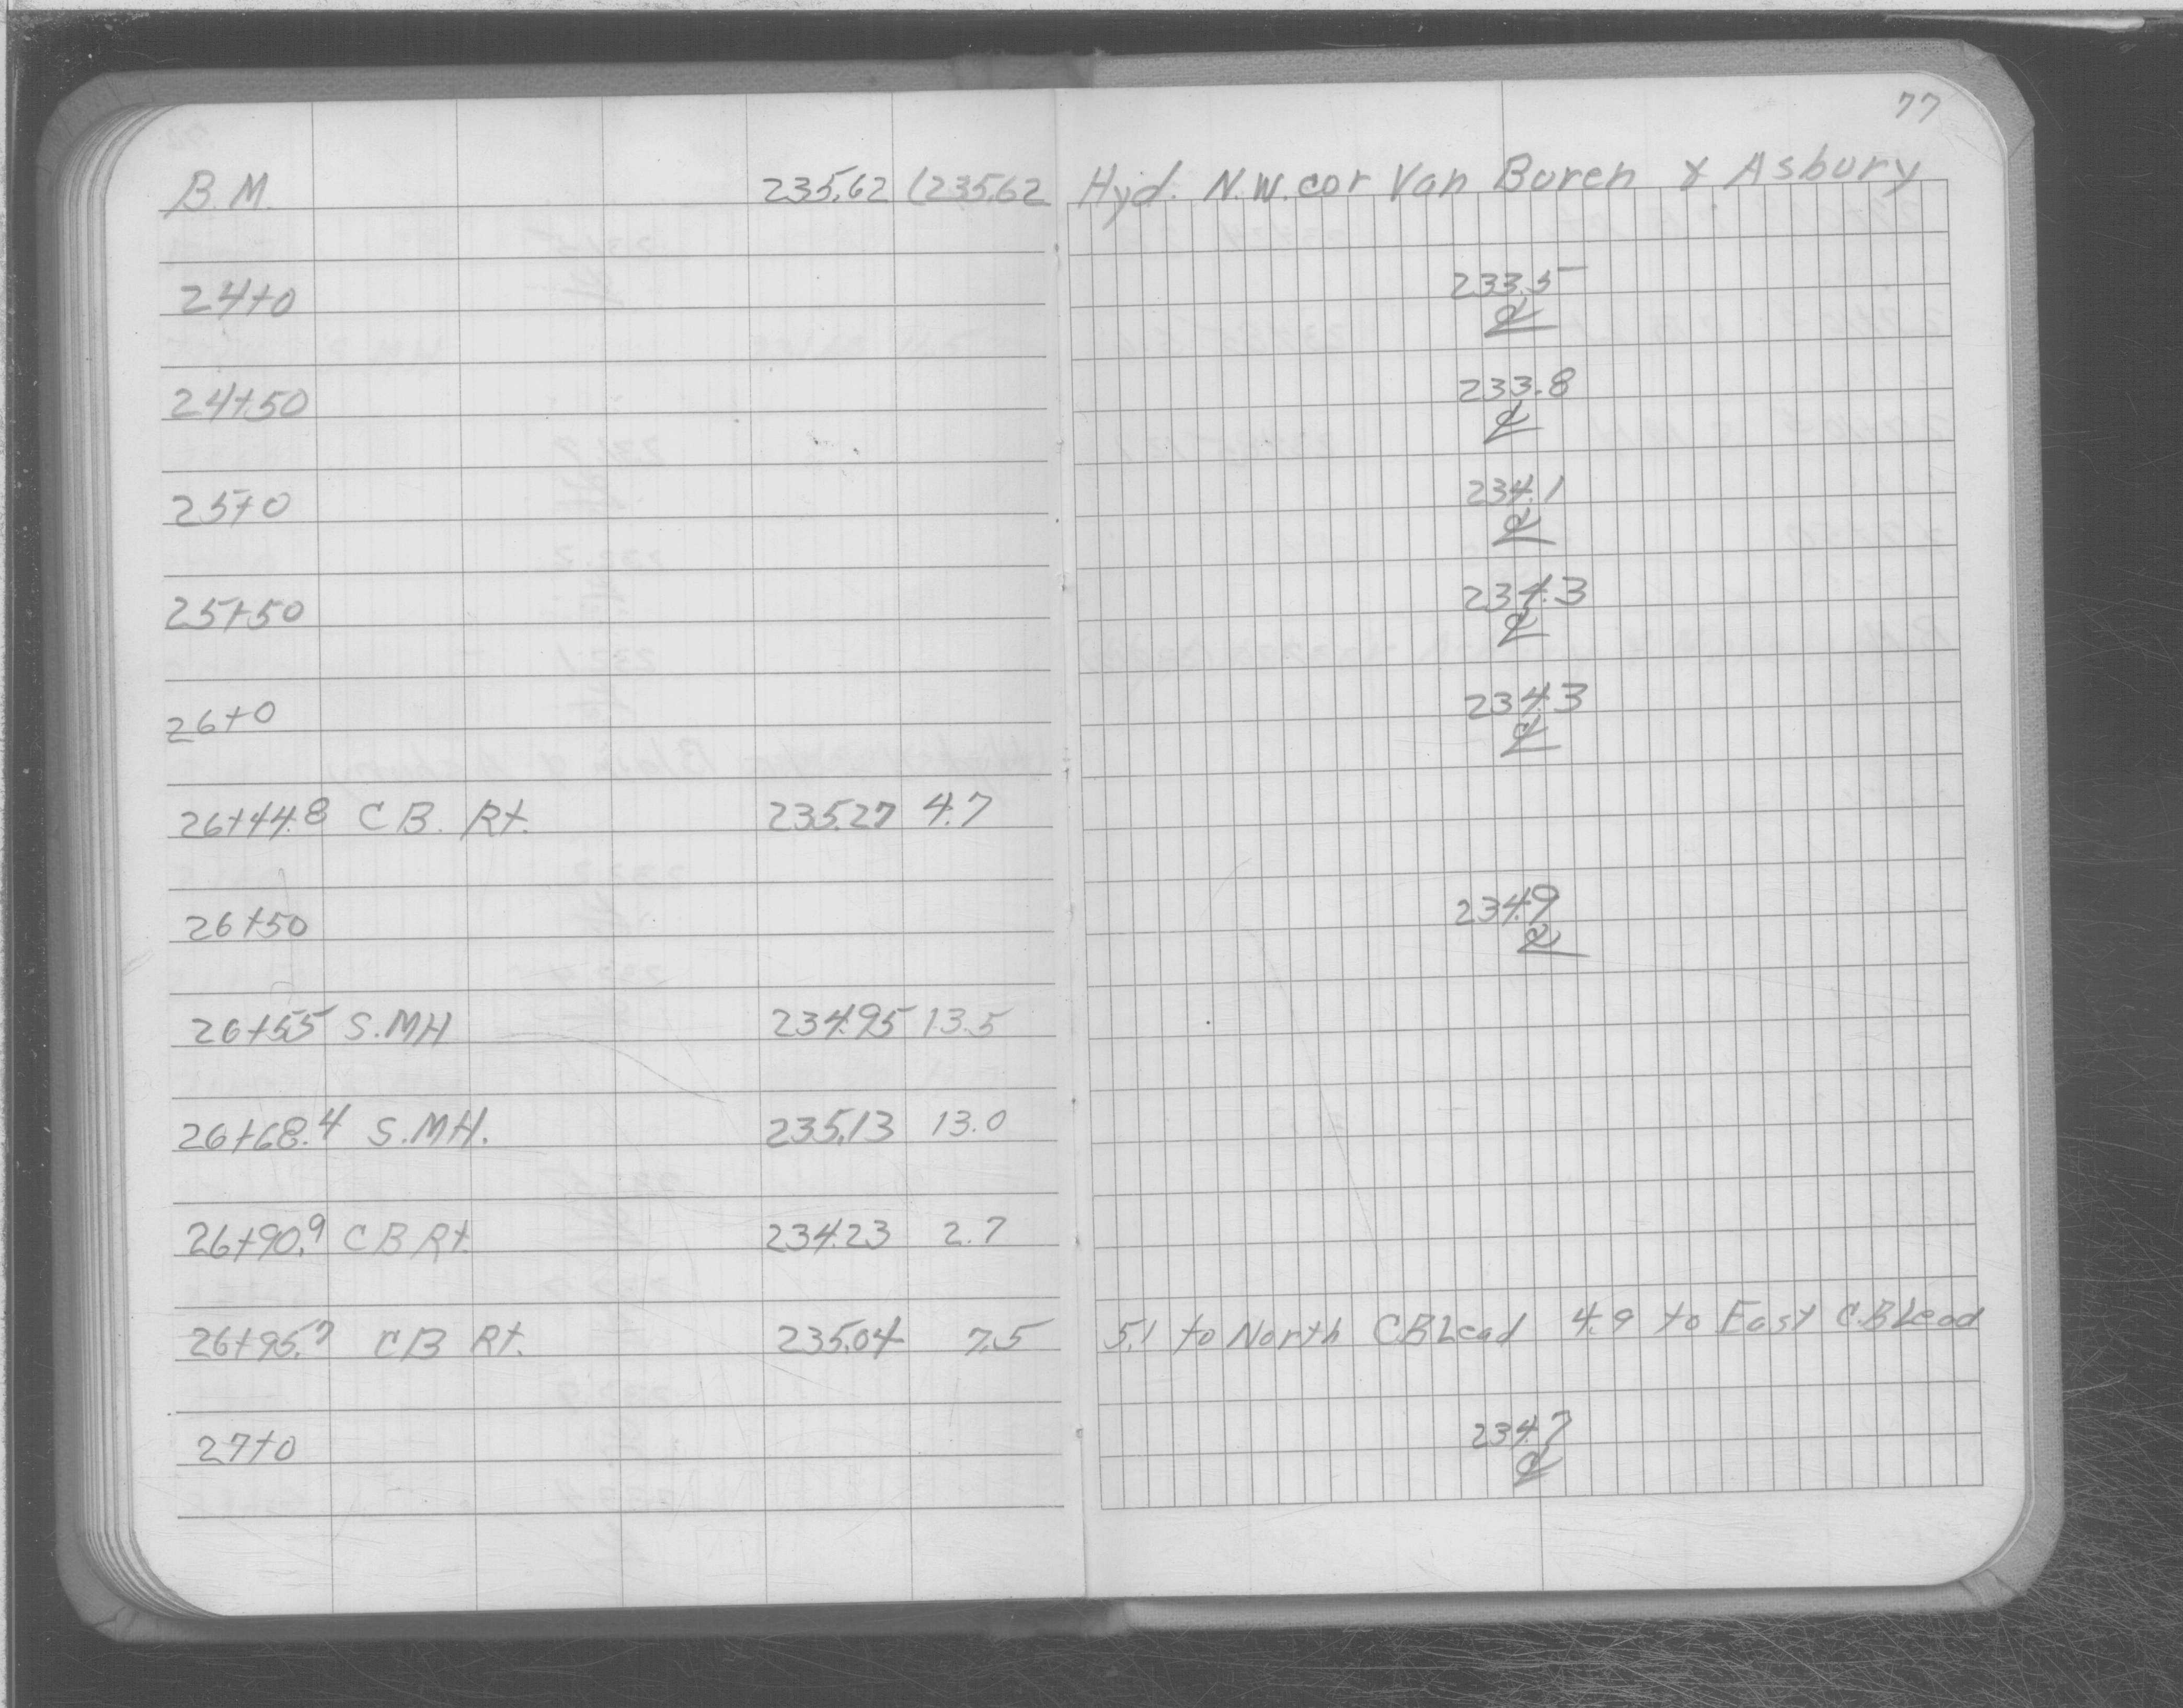 77
B.M. 235.62 (235.62 Hyd. N.W. cor Van Buren & Asbury
24+0 233.5
℄
24+50 233.8
℄
25+0 234.1
℄
25+50 234.3
℄
26+0 234.3
℄
26+44.8 C B. Rt. 235.27 4.7
26+50 234.9
℄
26+55 S.MH 234.95 13.5
26+68.4 S.MH. 235.13 13.0
26+90.9 C B Rt. 234.23 2.7
26+95.7 C B Rt. 235.04 7.5 5.1 to North C.B Lead 4.9 to East C.B Lead
27+0 234.7
℄